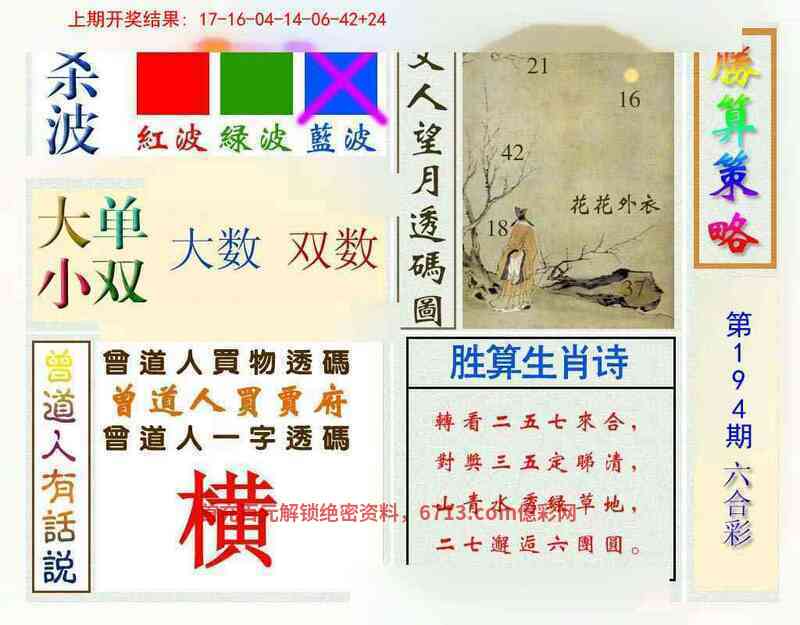 上期开奖结果：17-16-04-14-06-42+24
杀波
紅波 緑波 藍波
大单
小双
大数 双数
曾道人有話説
曾道人買物透碼
曾道人買賈府
曾道人一字透碼
横
文人望月透碼圖
21
16
42
花花外衣
18
37
胜算生肖诗
轉看二五七來合，
對奬三五定睇清，
山青水秀緑草地，
二七邂逅六團圓。
勝算策略
第194期六合彩
元解锁绝密资料，6713.com億彩网